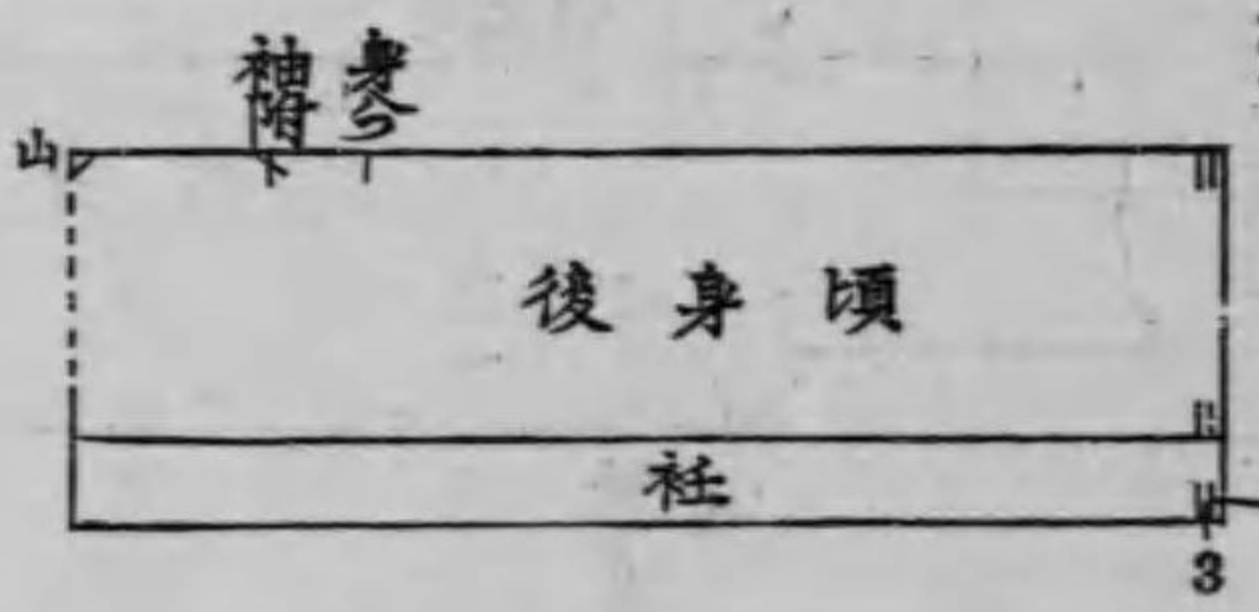 袖附
身八つ
山
後身頃
衽
3